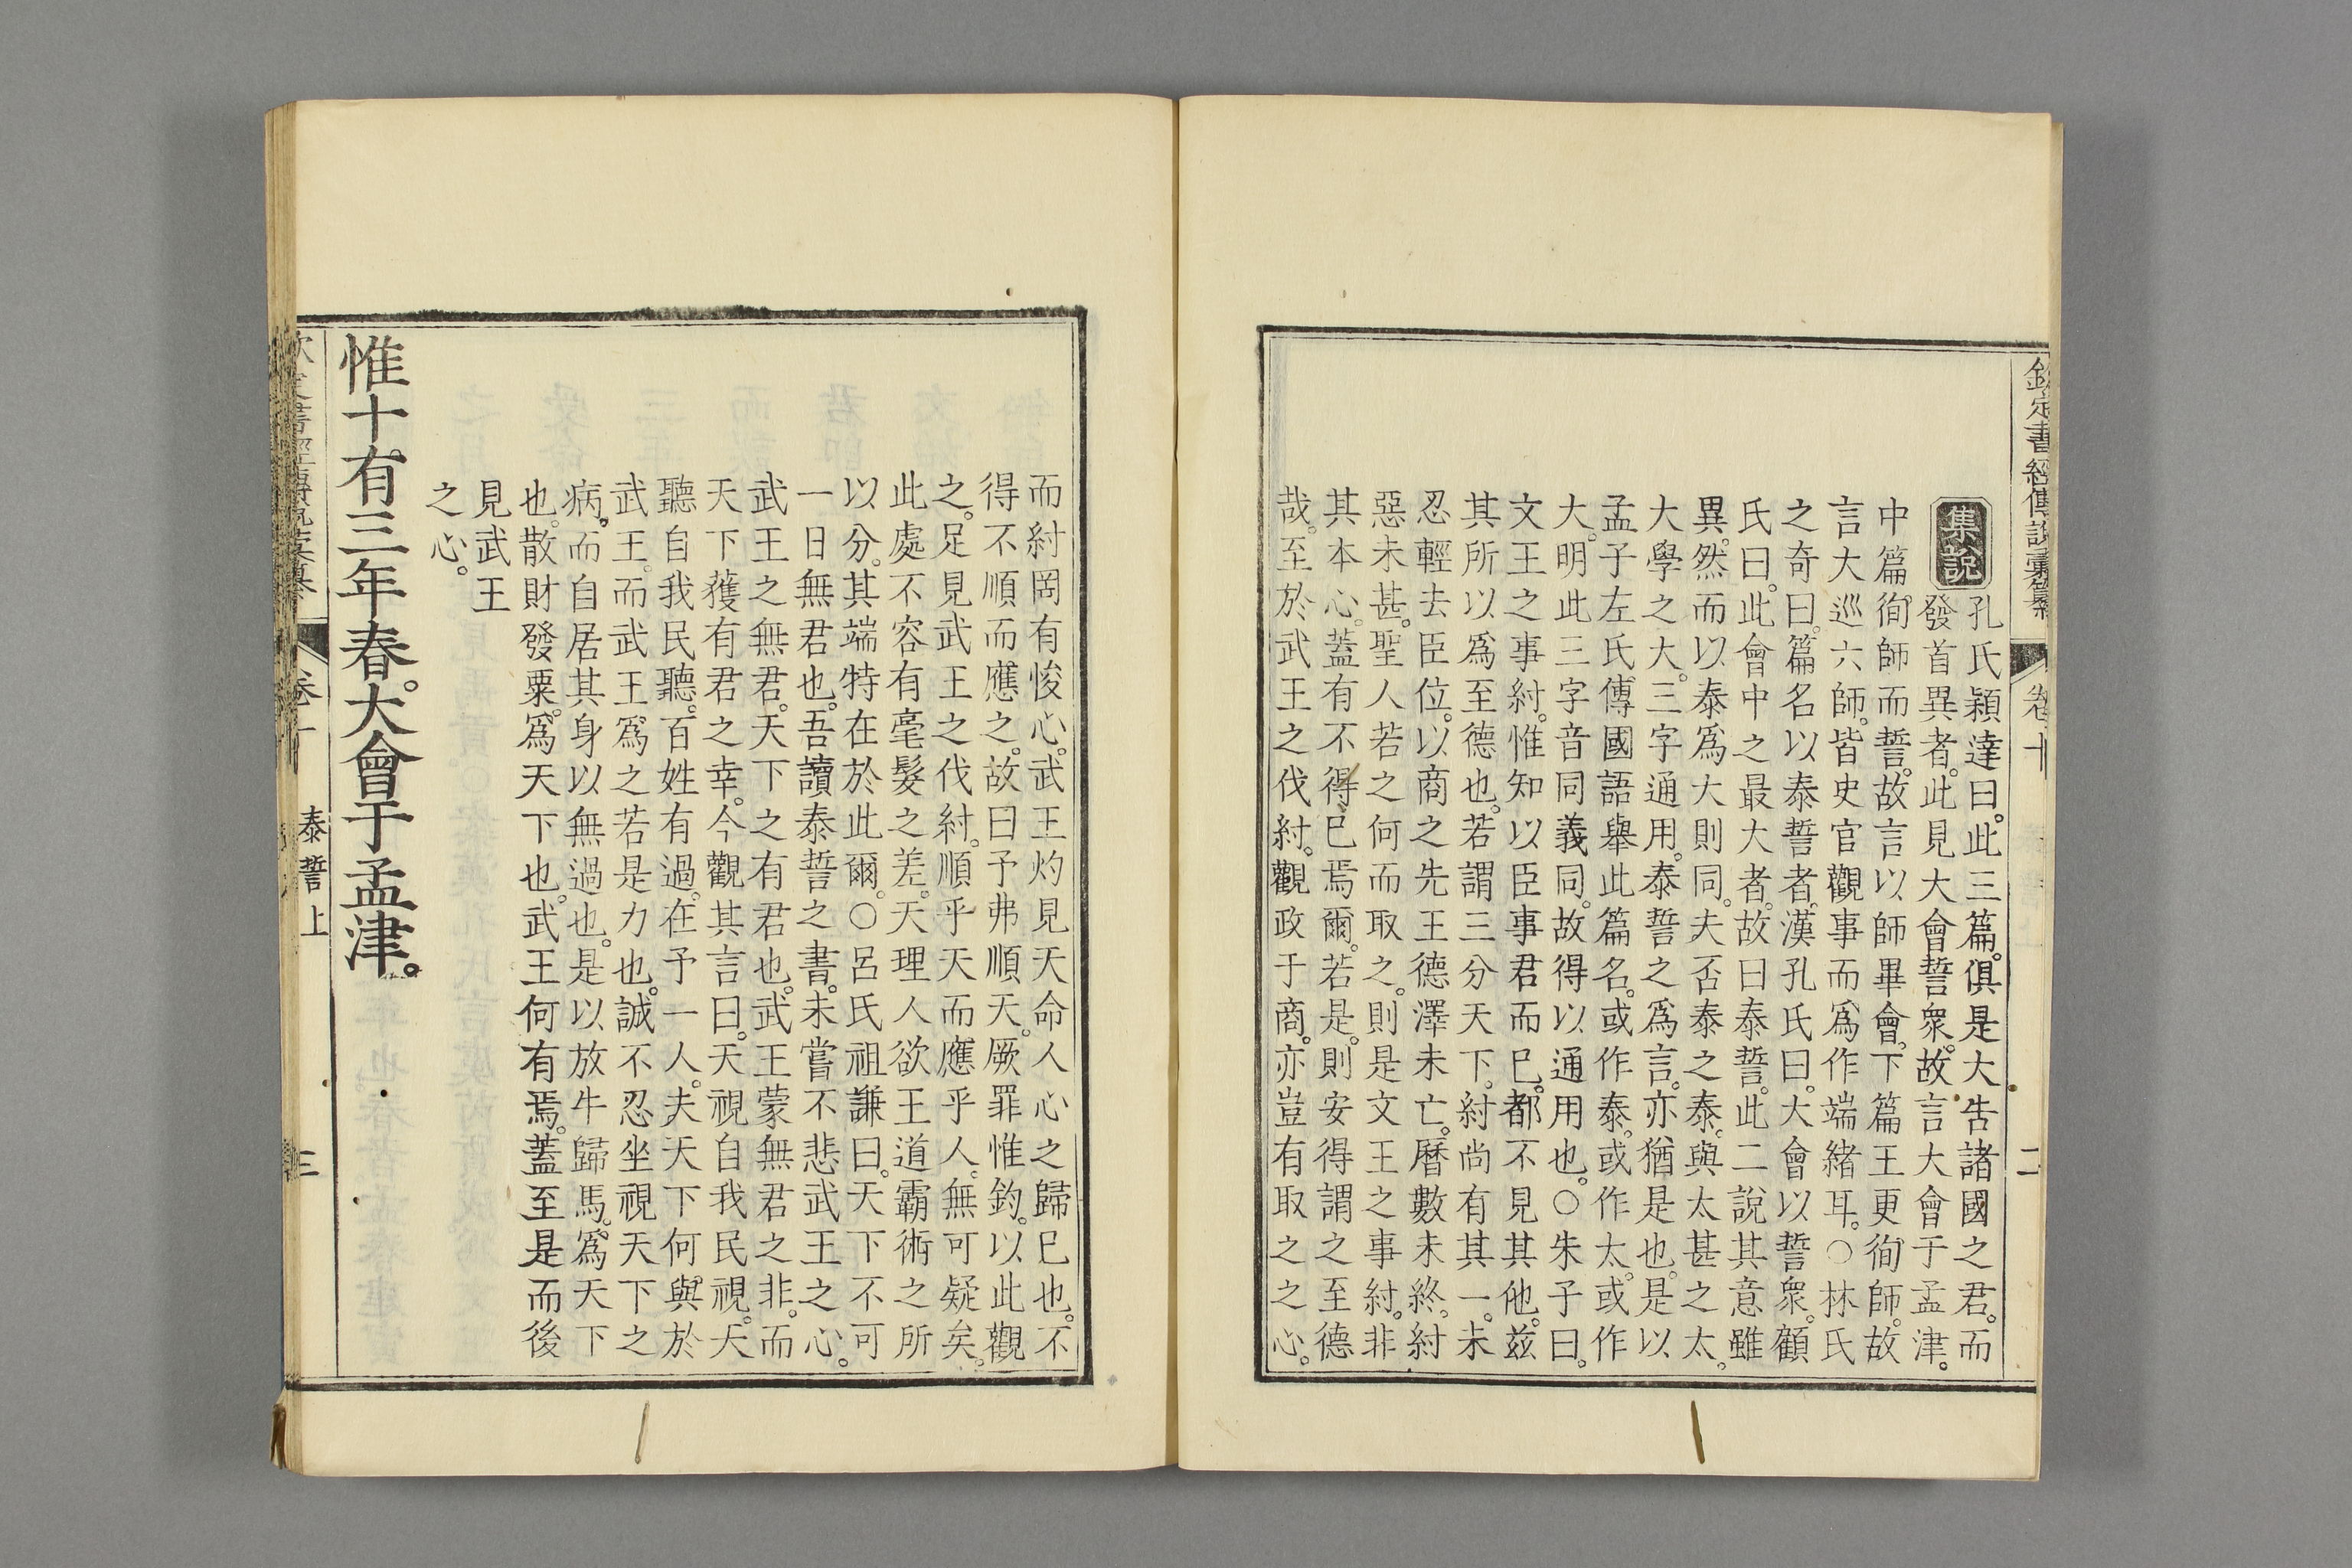 欽定書經傳說彙纂 卷十 二
集說
孔氏穎達曰。此三篇。俱是大告諸國之君。而
發首異者。此見大會誓衆。故言大會于孟津。
中篇。徇師而誓。故言以師畢會。下篇王更徇師。故
言大巡六師。皆史官觀事而爲作端緒耳。○林氏
之奇曰。篇名以泰誓者。漢孔氏曰。大會以誓衆。顧
氏曰。此會中之最大者。故曰泰誓。此二說其意雖
異。然而以泰爲大則同。夫否泰之泰。與太甚之太。
大學之大。三字通用。泰誓之爲言。亦猶是也。是以
孟子左氏傳國語舉此篇名。或作泰。或作太。或作
大。明此三字音同義同。故得以通用也。○朱子曰。
文王之事紂。惟知以臣事君而已。都不見其他。茲
其所以爲至德也。若謂三分天下。紂尚有其一。未
忍輕去臣位。以商之先王德澤未亡。曆數未終。紂
惡未甚。聖人若之何而取之。則是文王之事紂。非
其本心。蓋有不得已焉爾。若是。則安得謂之至德
哉。至於武王之伐紂。觀政于商。亦豈有取之之心。
而紂罔有悛心。武王灼見天命人心之歸已也。不
得不順而應之。故曰予弗順天。厥罪惟鈞。以此觀
之。足見武王之伐紂。順乎天而應乎人。無可疑矣。
此處不容有毫髮之差。天理人欲王道霸術之所
以分。其端特在於此爾。○呂氏祖謙曰。天下不可
一日無君也。吾讀泰誓之書。未嘗不悲武王之心。
武王之無君。天下之有君也。武王蒙無君之非。而
天下獲有君之幸。今觀其言曰。天視自我民視。天
聽自我民聽。百姓有過。在予一人。夫天下何與於
武王。而武王爲之若是力也。誠不忍坐視天下之
病。而自居其身以無過也。是以放牛歸馬。爲天下
也。散財發粟。爲天下也。武王何有焉。蓋至是而後
見武王
之心。
惟十有三年春。大會于孟津。
卷十 泰誓上 三